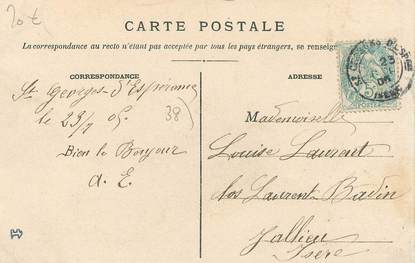 20 €
CARTE POSTALE
La correspondance au recto n'étant pas acceptée par tous les pays étrangers, se renseign
CORRESPONDANCE
ADRESSE
St Georges-d'Espéranche
le 23/7 05
38)
Bien le Bonjour
a. E.
Mademoiselle
Louise Laurent
Laurent Badin
Jallieu
Isère